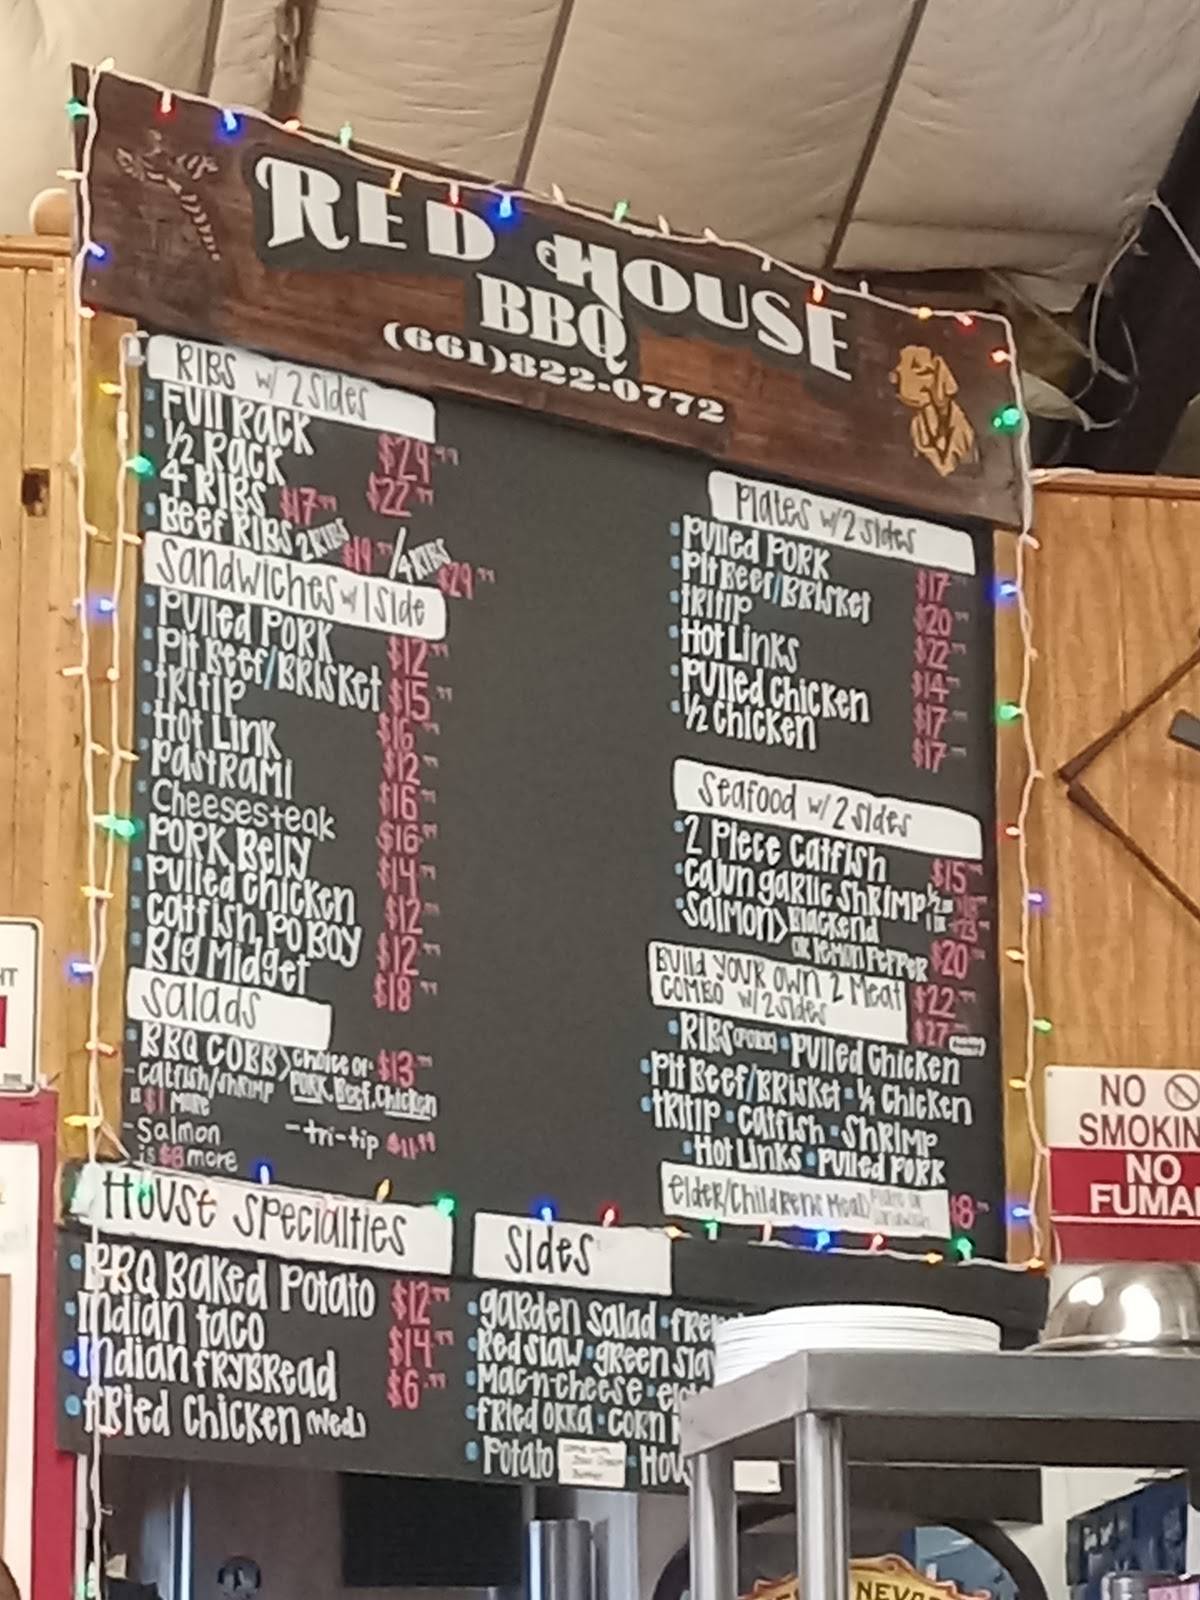 RED HOUSE
BBQ
(661)822-0772
RIBS w/ 2 Sides
Full Rack $29.99
1/2 Rack $22.99
4 Ribs $17.99
Beef Ribs 2 Ribs $19.99 / 4 Ribs $29.99
Sandwiches w/ 1 Side
Pulled Pork $12.99
Pit Beef/Brisket $15.99
Tritip $16.99
Hot Link $12.99
Pastrami $16.99
Cheesesteak $16.99
Pork Belly $14.99
Pulled Chicken $12.99
Catfish Po Boy $12.99
Big Midget $18.99
Salads
BBQ COBB > Choice of: $13.99
Pork, Beef, Chicken
- Catfish/Shrimp
is $1 more
- Salmon
is $8 more
- tri-tip $11.99
Plates w/ 2 Sides
Pulled Pork $17
Pit Beef/Brisket $20
Tritip $22
Hot Links $14
Pulled Chicken $17
1/2 Chicken $17
Seafood w/ 2 Sides
2 Piece Catfish $15
Cajun Garlic Shrimp
Salmon > Blackend
or Lemon Pepper $20
Build Your Own 2 Meat $22
Combo w/ 2 Sides $27
• Ribs (Pork) • Pulled Chicken
• Pit Beef/Brisket • 1/4 Chicken
• Tritip • Catfish • Shrimp
• Hot Links • Pulled Pork
Elder/Childrens Meal $8
House Specialties
BBQ Baked Potato $12.99
Indian Taco $14.99
Indian Frybread $6.99
Fried Chicken (Wed.)
Sides
• Garden Salad
• Red Slaw • Green
• Mac-n-Cheese
• Fried Okra • Corn
• Potato
NO
SMOKIN
NO
FUMA
NEV